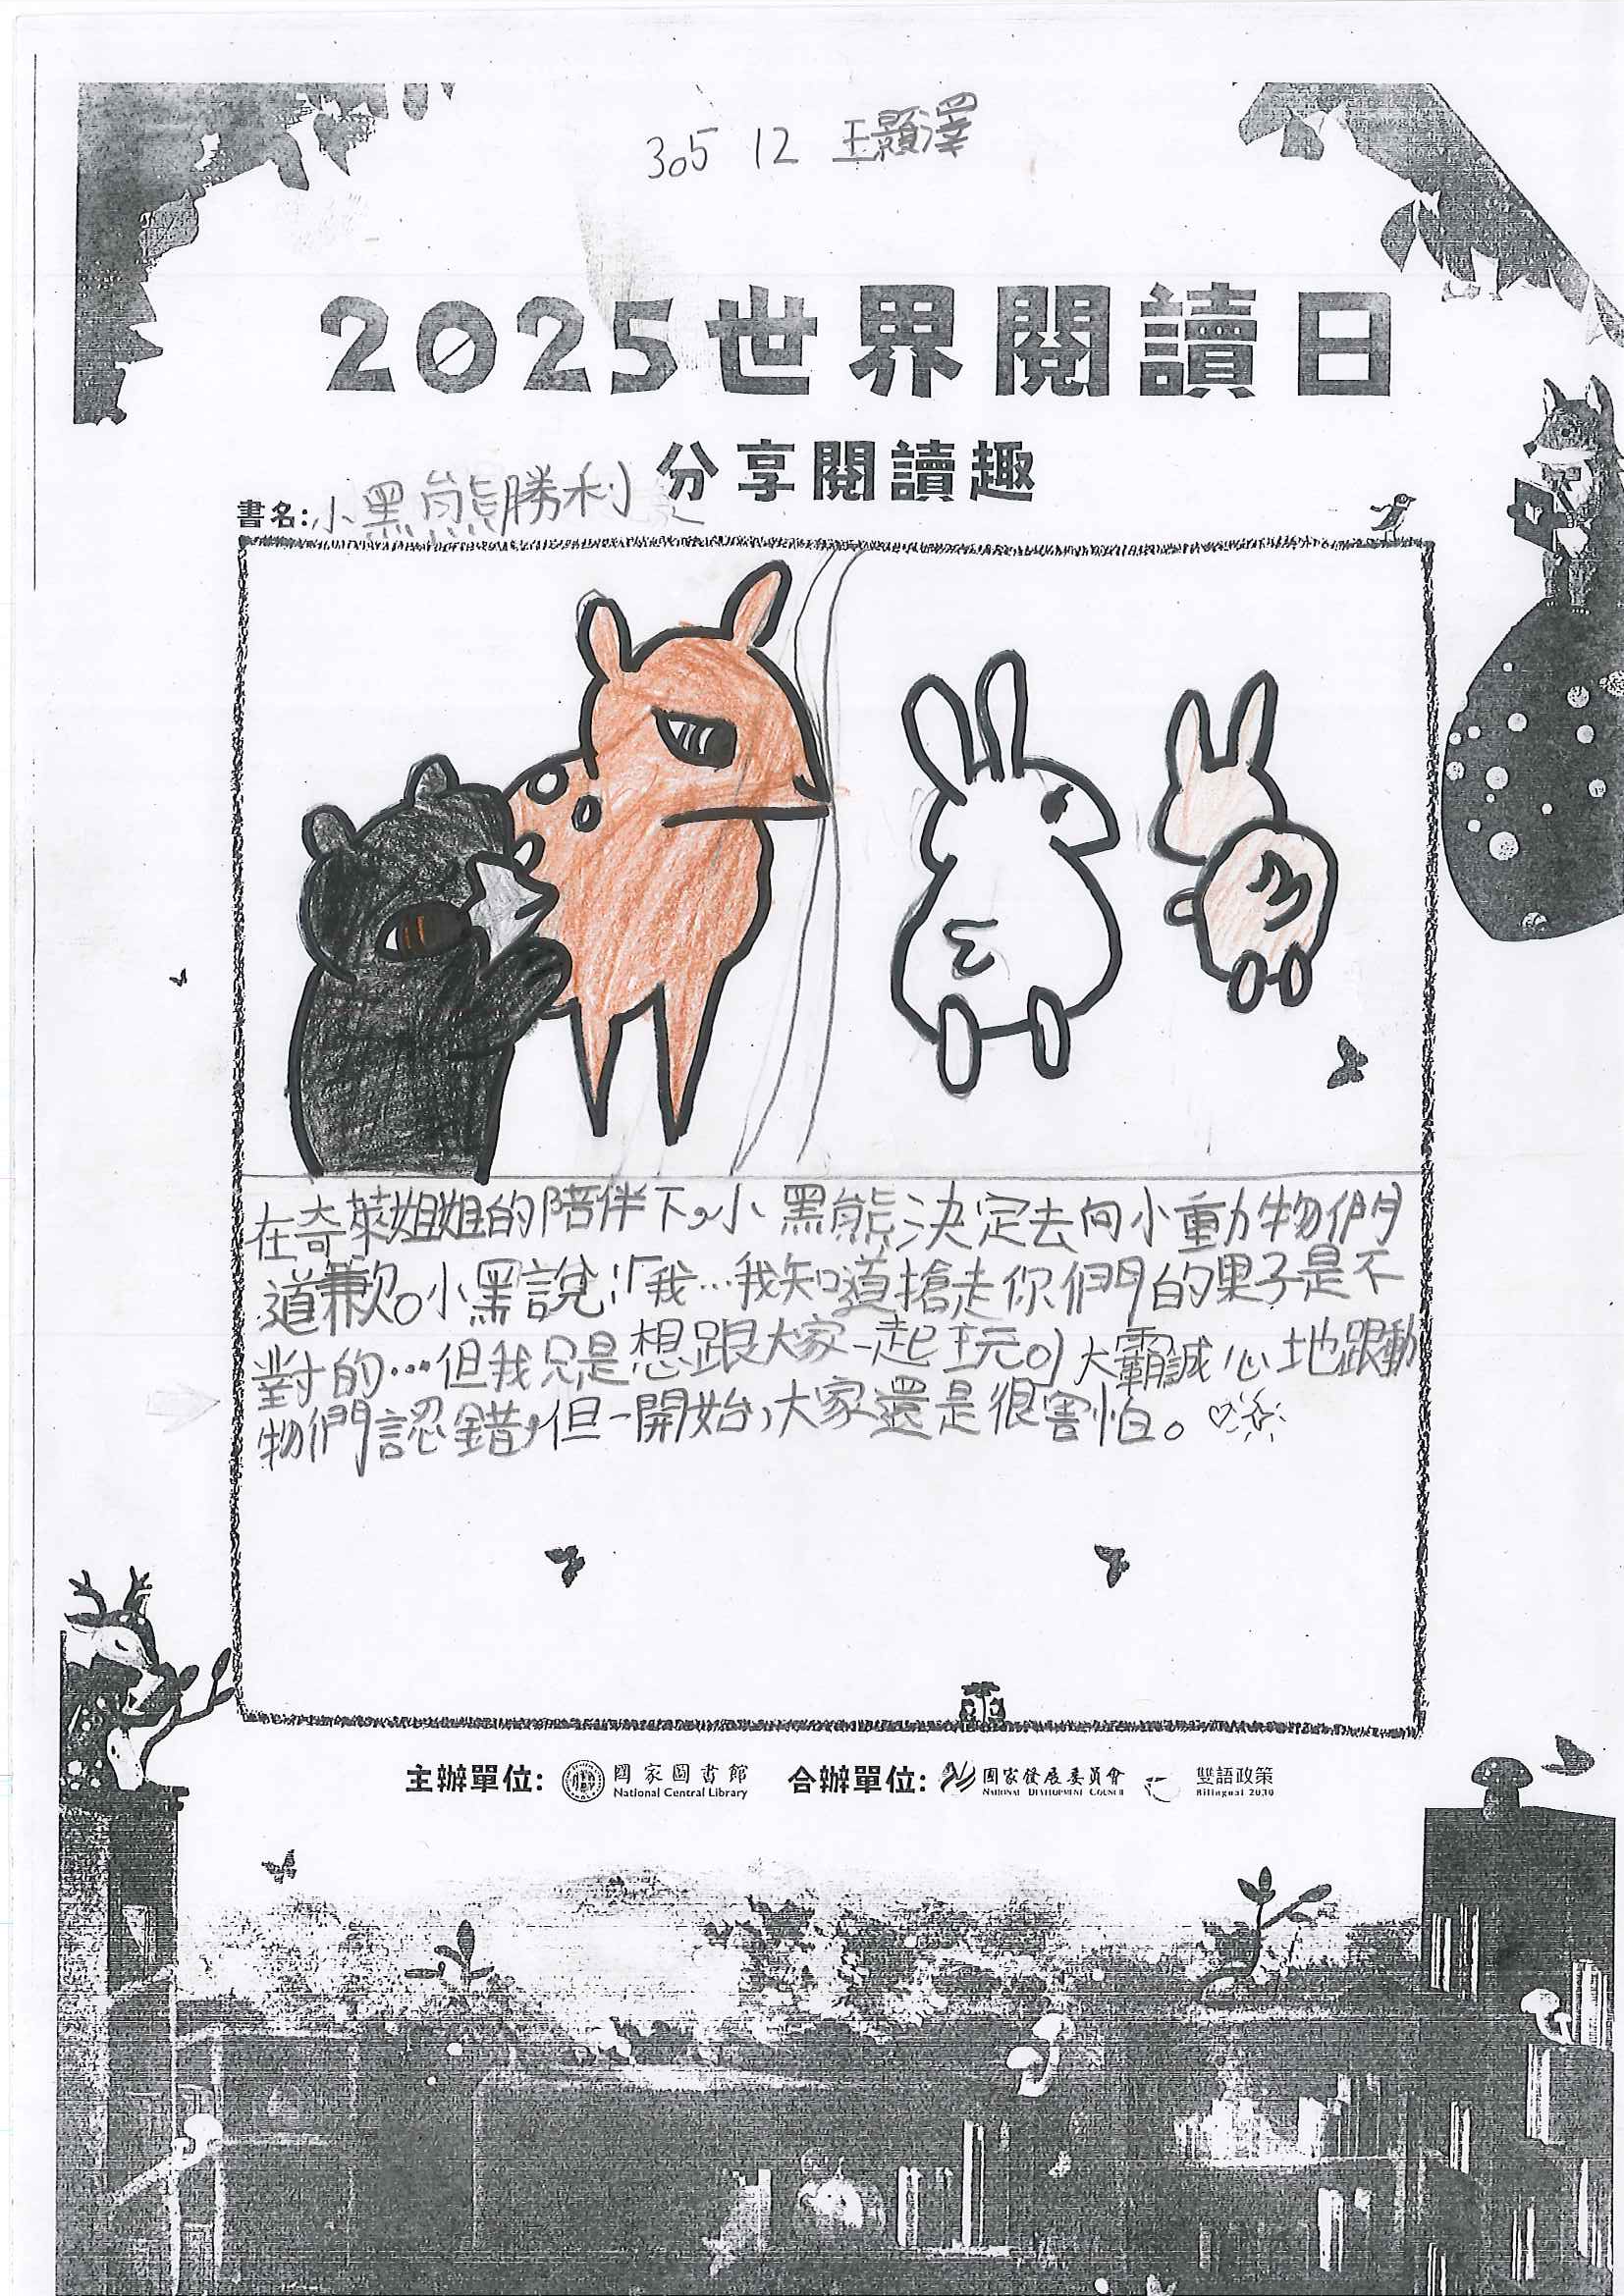 305 12 王顥澤
2025世界閱讀日
分享閱讀趣
書名:小黑熊勝利
在奇萊姐姐的陪伴下,小黑熊決定去向小動物們
道歉。小黑說:「我…我知道搶走你們的果子是不
對的…但我只是想跟大家一起玩。」大霸誠心地跟動
物們認錯,但一開始,大家還是很害怕。
主辦單位: 國家圖書館 National Central Library 合辦單位: 國家發展委員會 NATIONAL DEVELOPMENT COUNCIL 雙語政策 Bilingual 2030